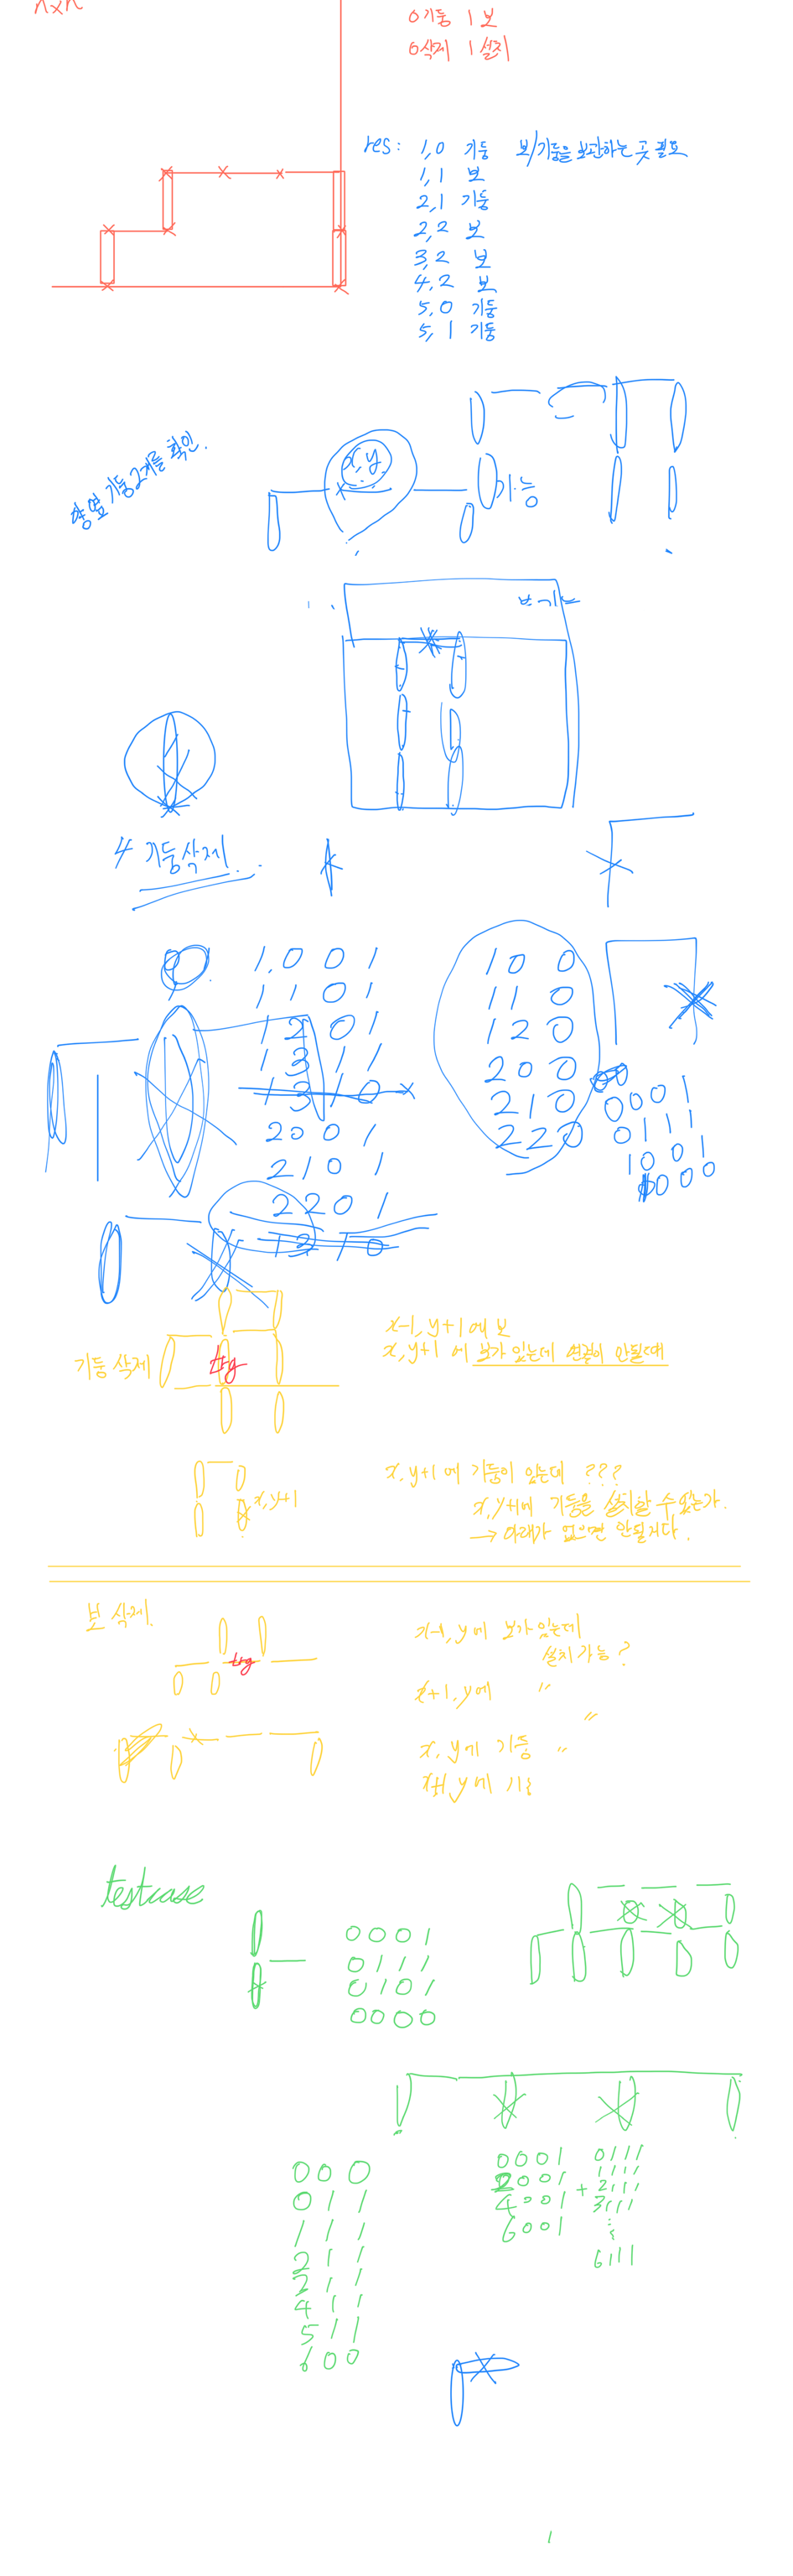 n×n
0 기둥 1 보
0 삭제 1 설치
res: 1,0 기둥 보/기둥을 보관하는 곳 필요
1,1 보
2,1 기둥
2,2 보
3,2 보
4,2 보
5,0 기둥
5,1 기둥
양옆 기둥 2개를 확인.
x,y
가능
4 기둥삭제
1,0 0 1
1 1 0 1
1 2 0 1
1 3 1 1
1 3 1 0
2 0 0 1
2 1 0 1
2 2 0 1
1 3 1 0
1 0 0
1 1 0
1 2 0
2 0 0
2 1 0
2 2 0
0 0 0 1
0 1 1 1
1 0 0 1
0 0 0
기둥 삭제
trg
x-1, y+1 에 보
x, y+1 에 보가 있는데 연결이 안될때
x,y+1
x, y+1 에 기둥이 있는데 ???
x, y+1에 기둥을 설치할 수 있는가.
→ 아래가 없으면 안될거다.
보 삭제.
trg
x-1, y에 보가 있는데
설치 가능?
x+1, y에 〃
〃
x, y에 기둥 〃
x+1, y에 기둥
testcase
0 0 0 1
0 1 1 1
0 1 0 1
0 0 0 0
0 0 0
0 1 1
1 1 1
2 1 1
2 1 1
4 1 1
5 1 1
6 0 0
0 0 0 1
2 0 0 1
4 0 0 1
6 0 0 1
+
0 1 1 1
1 1 1 1
2 1 1 1
3 1 1 1
:
6 1 1 1